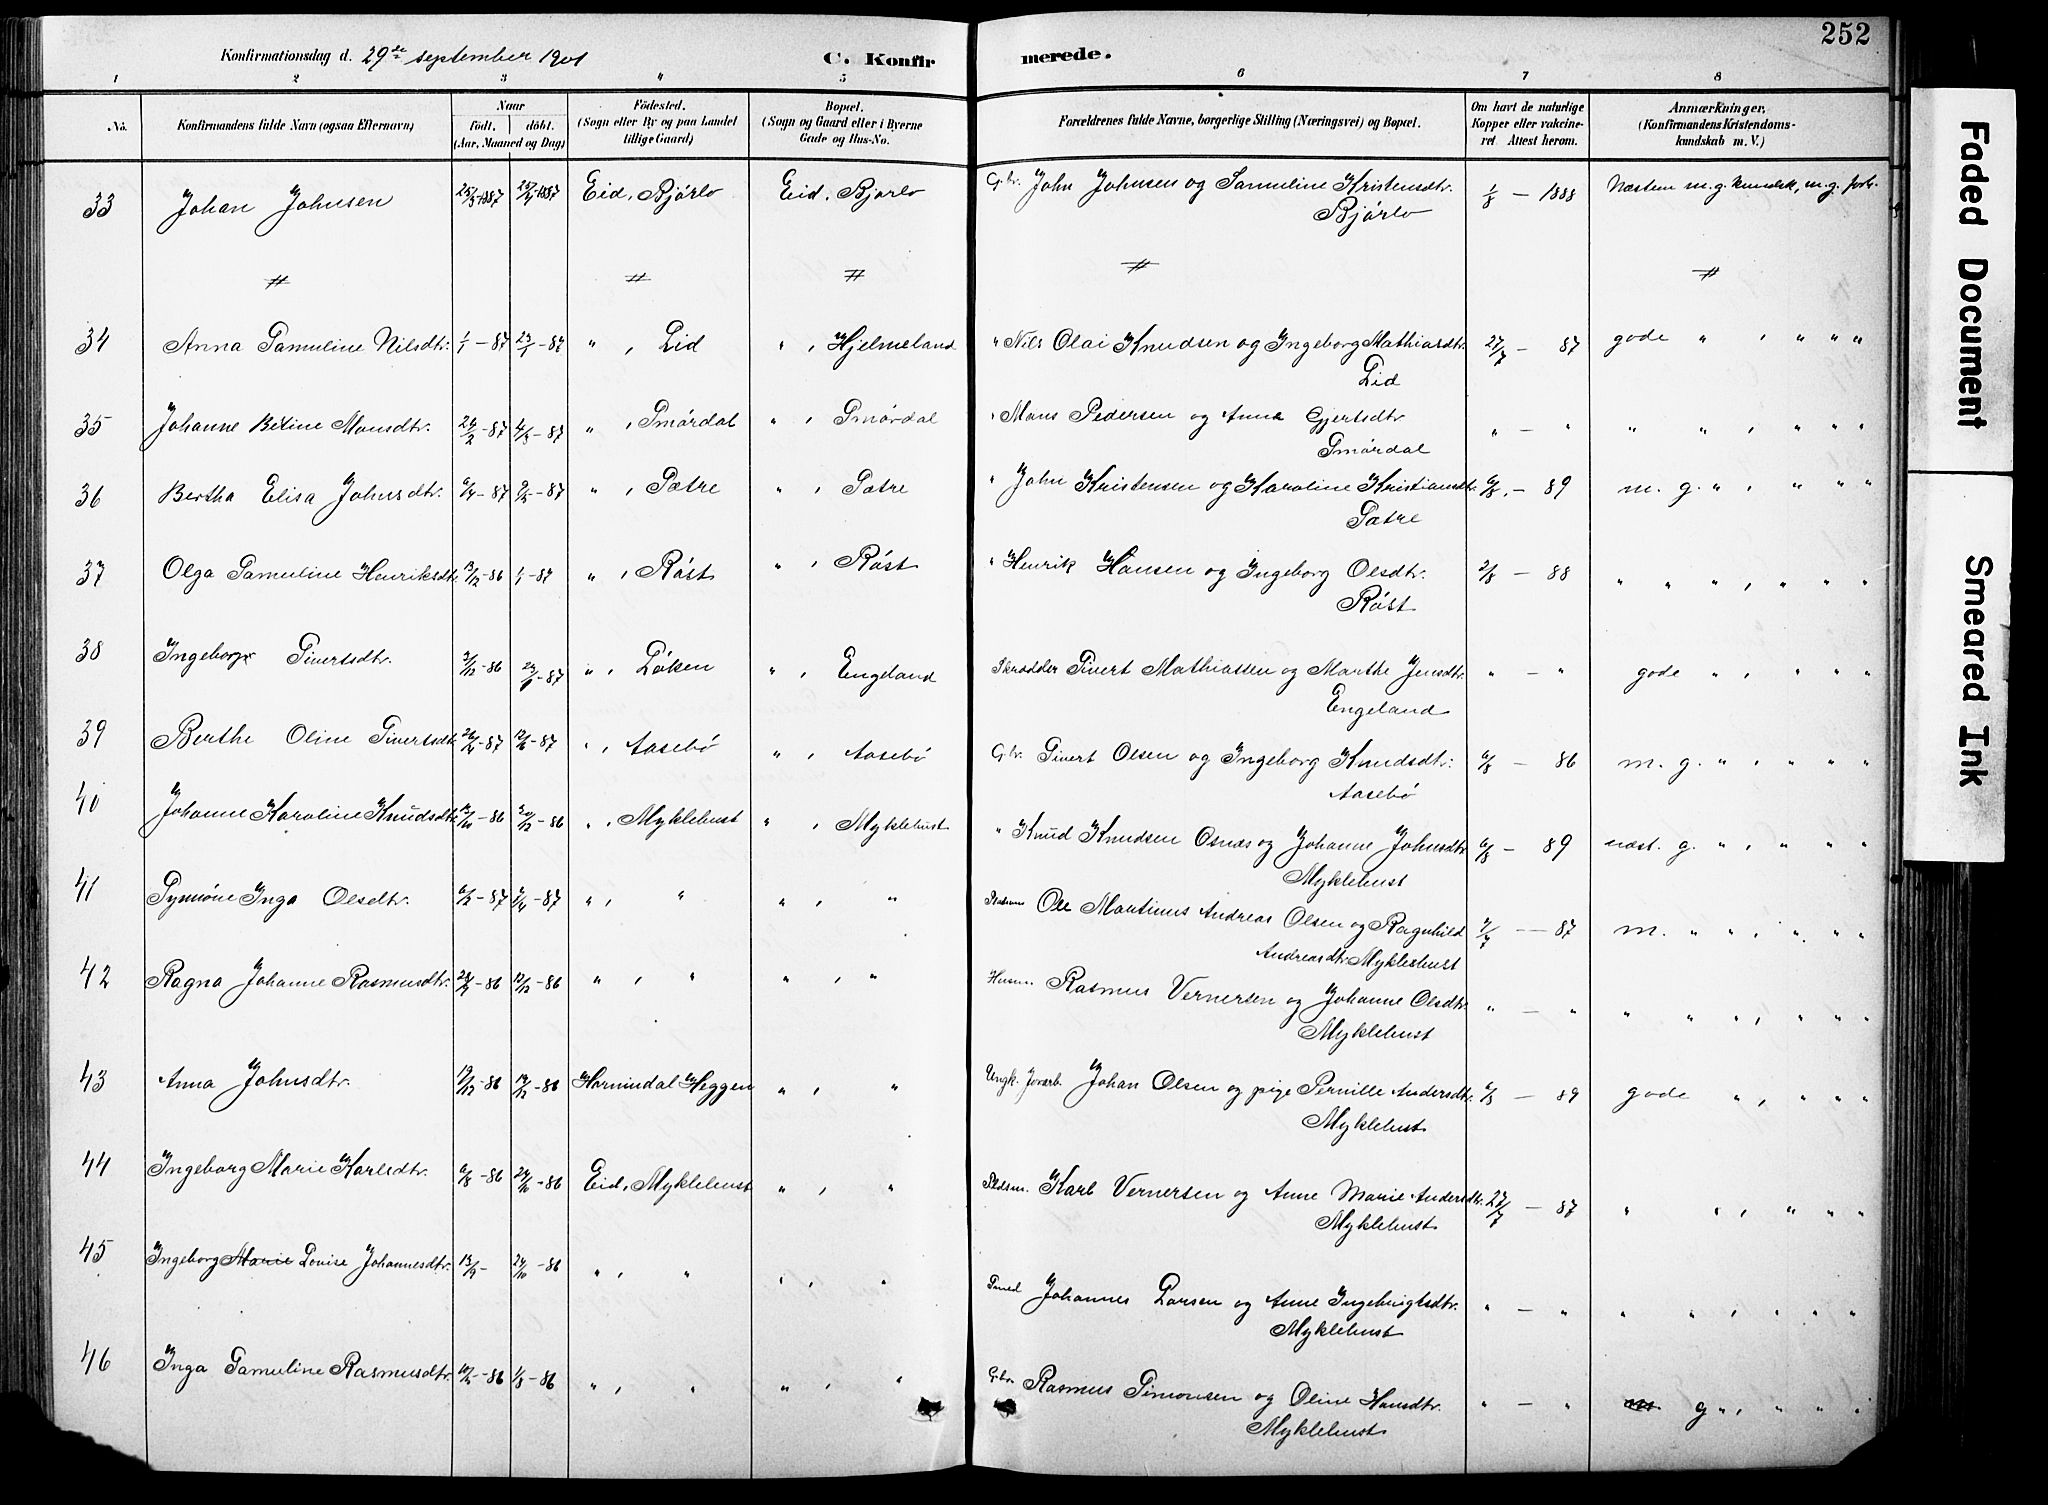 252
Konfirmationsdag d. 29de september 1901 C. Konfirmerede.
1 2 3 " 5 6 7 8
No. Konfirmandens fulde Navn (ogsaa Efternavn) Naar födt. döbt. (Aar, Maaned og Dag) Födested. (Sogn eller By og paa Landet tillige Gaard) Bopæl. (Sogn og Gaard eller i Byerne Gade og Hus-No. Forældrenes fulde Navne, borgerlige Stilling (Næringsvei) og Bopæl. Om havt de naturlige Kopper eller vakcineret. Attest herom. Anmærkninger. (Konfirmandens Kristendomskundskab m. V.)
33 Johan Johnsen Eid, Bjørlo Eid, Bjørlo Gbr. John Johnsen og Samuline Kristensdtr. 1/8 - 1888 Næsten m. g. kundsk, m. g. forh.
Bjørlo
34 Anna Samuline Nilsdtr. 1/1 - 87 23/1 - 87 " , Lid " , Hjelmeland " Nils Olai Knudsen og Ingeborg Mathiasdtr. 27/7 - 87 gode " , " " "
Lid
35 Johanne Betine Monsdtr. " , Smørdal " , Smørdal Mons Pedersen og Anna Gjertsdtr. " - " " " , " " "
Smørdal
36 Bertha Elisa Johnsdtr. " , Sætre " , Sætre " John Kristensen og Karoline Kristiansdtr. 6/8 - 89 m. g. " , " " "
Sætre
37 Olga Samuline Henriksdtr. 13/12 - 86 1/1 - 87 " , Røst " , Røst " Henrik Hansen og Ingeborg Olsdtr. 2/8 - 88 " " " , " " "
Røst
38 Ingeborg Sivertsdtr. " , Løken " , Engeland Skrædder Sivert Mathiassen og Marthe Jensdtr. " - " gode " , " " "
Engeland
39 Berthe Oline Sivertsdtr. " , Aasebø " , Aasebø Gbr. Sivert Olsen og Ingeborg Knudsdtr. 6/8 - 86 m. g. " , " " "
Aasebø
40 Johanne Karoline Knudsdtr. " , Myklebust " , Myklebust " Knud Knudsen Osnæs og Johanne Johnsdtr. 6/8 - 89 næst. g. " , " " "
Myklebust
41 Synnøve Inga Olsdtr. " , " " , " Ole Martinus Andreas Olsen og Ragnhild - 87 m. " " , " " "
Andreasdtr. Myklebust
42 Ragna Johanne Rasmusdtr. " , " " , " Husm. Rasmus Vernersen og Johanne Olsdtr. " - " " " " , " " "
Myklebust
43 Anna Johnsdtr. Hornindal Heggen " , " Ungk. Johan Olsen og pige Pernille Andersdtr. 6/8 - 89 gode " , " " "
Myklebust
44 Ingeborg Marie Karlsdtr. 6/8 - 86 24/10 - 86 Eid, Myklebust " , " Pldsm. Karl Vernersen og Anne Marie Andersdtr. 27/7 - 87 " " , " " "
Myklebust
45 Ingeborg Marie Lovise Johannesdtr. 13/9 - 24/10 - 86 " , " " , " Smed Johannes Larsen og Anne Ingebrigtsdtr. " - " " " , " " "
Myklebust
46 Inga Samuline Rasmusdtr. 1/8 - 86 " , " " , " Gbr. Rasmus Simonsen og Oline Hansdtr. " - " m g " , " " "
Myklebust
Faded Document
Smeared Ink